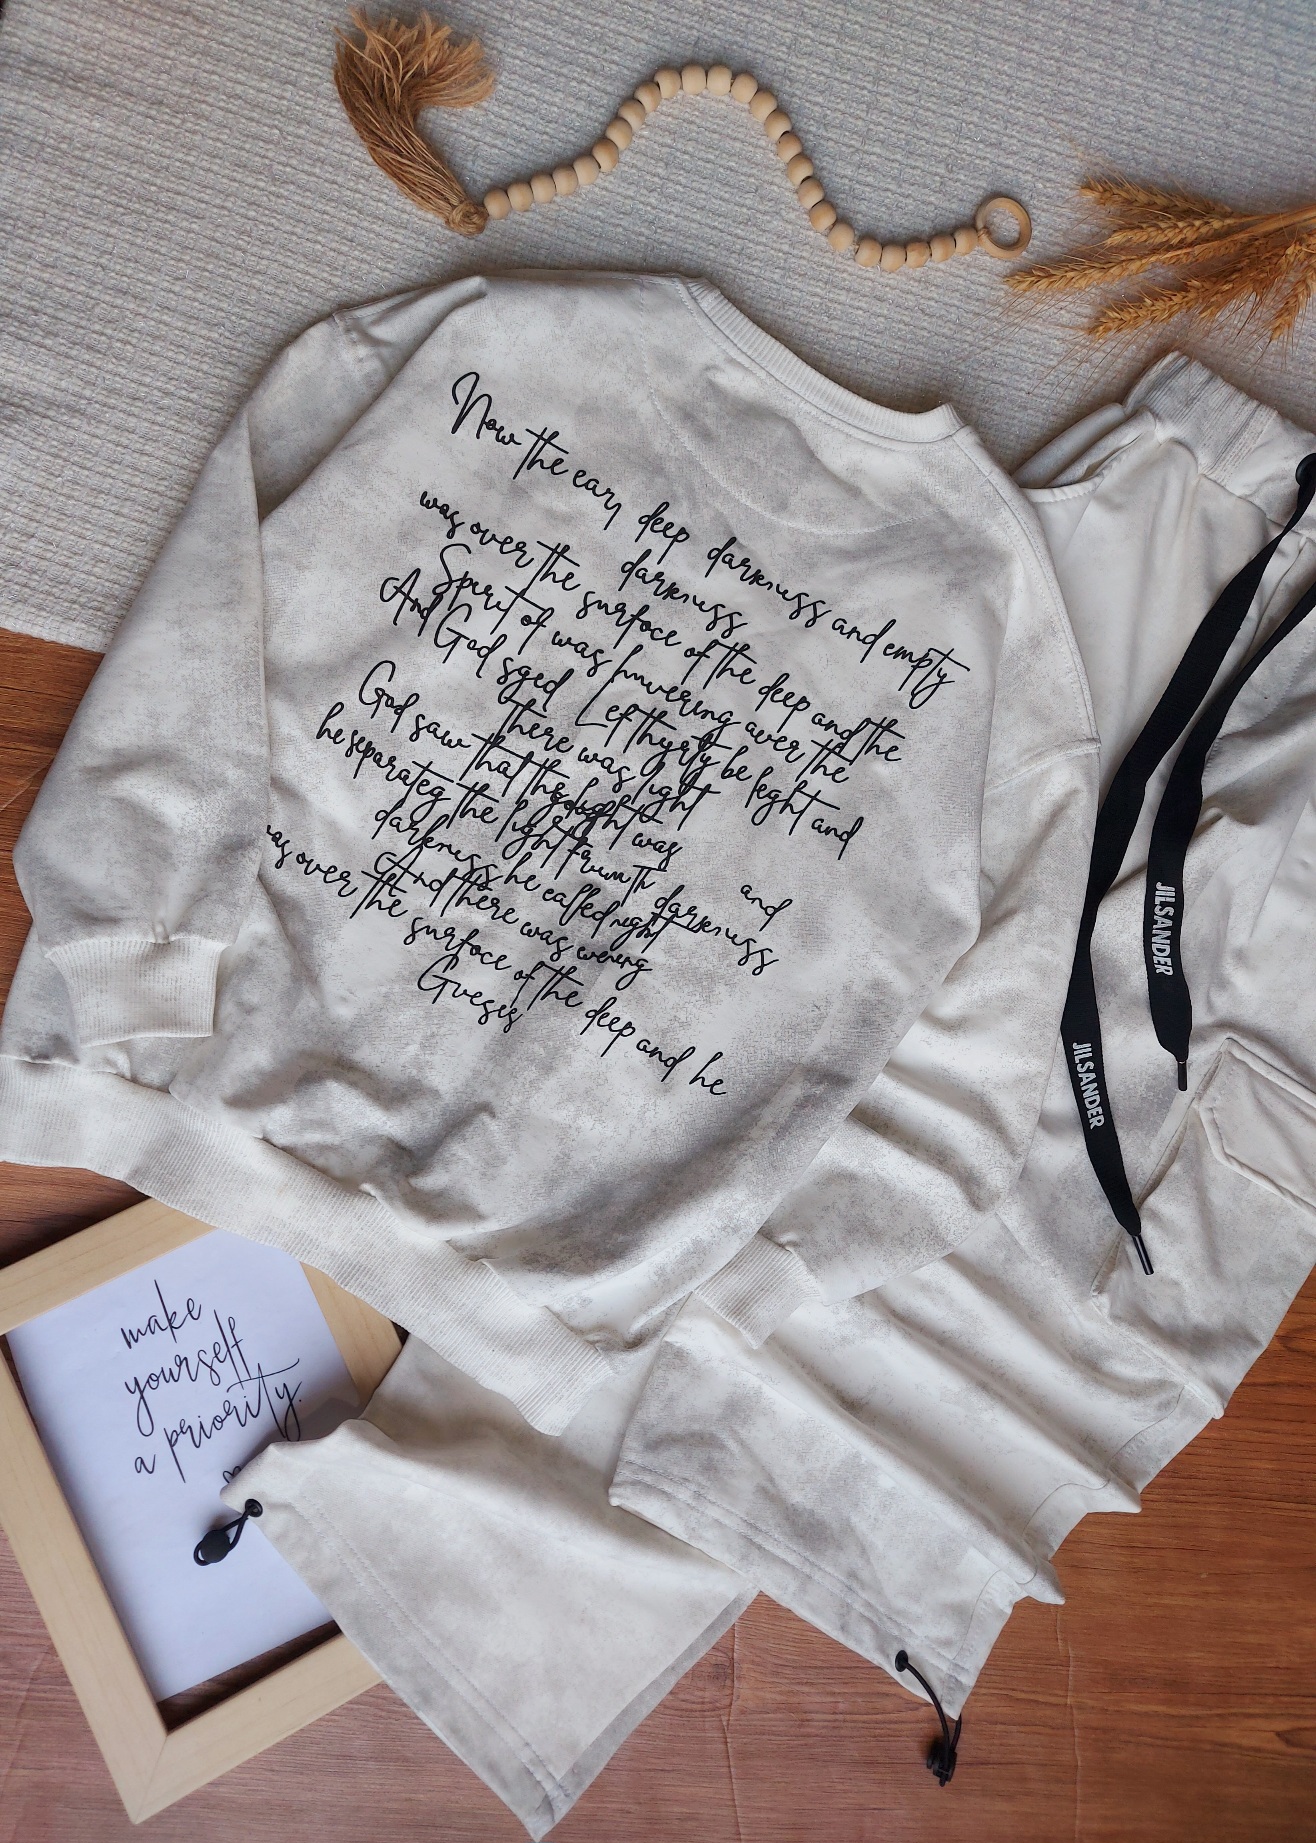 Now the eary deep darkness and empty
darkness
was over the surface of the deep and the
Spirit of was huvering aver the
And God sged Let thyrty be leght and
there was light
God saw that the light was
he separateg the light frum Th and
darkness he called night darkness
And there was evening
was over the surface of the deep and he
Gueses
JILSANDER
JILSANDER
make
yourself
a priority.